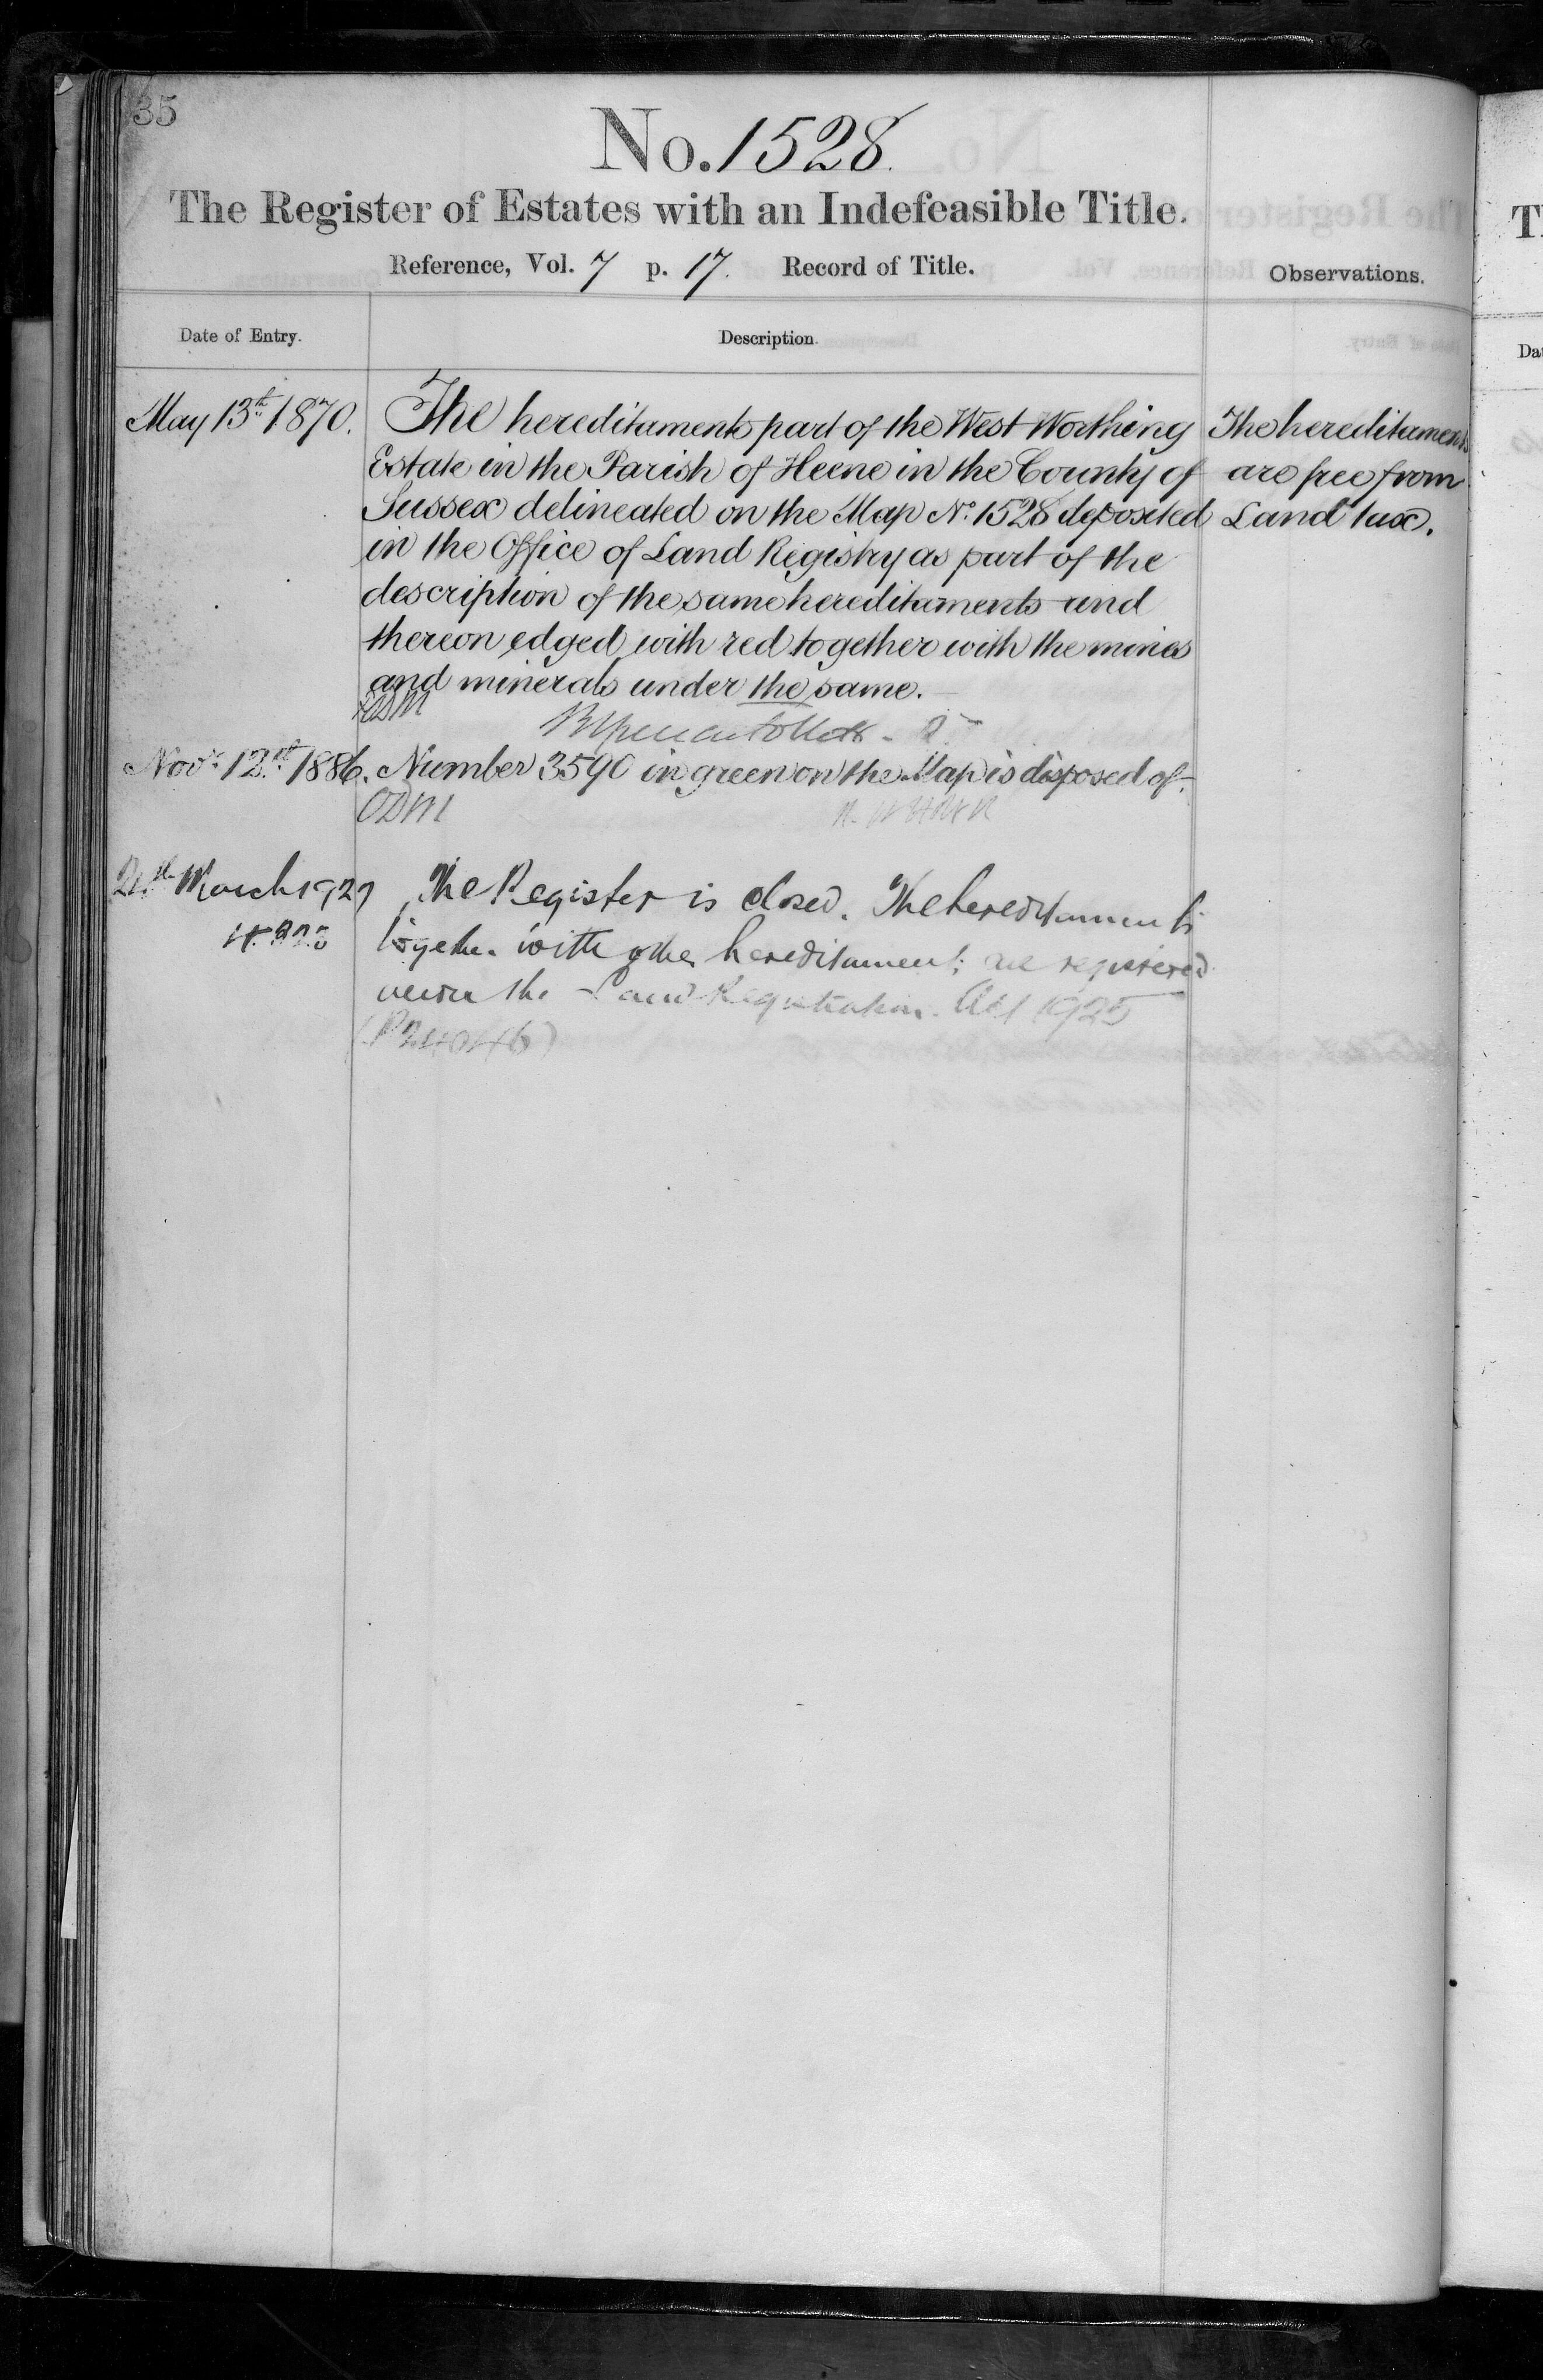 35
No. 1528.
The Register of Estates with an Indefeasible Title.
Reference, Vol. 7 p. 17. Record of Title.
Observations.
Date of Entry.
Description.
May 13th 1870.
The hereditaments part of the West Worthing
Estate in the Parish of Heene in the County of
Sussex delineated on the Map No. 1528 deposited
in the Office of Land Registry as part of the
description of the same hereditaments and
thereon edged with red together with the mines
and minerals under the same.
The hereditaments
are free from
Land tax.
Novr. 12th 1886.
Number 3590 in green on the Map is disposed of.
ODM
March 1927
The Register is closed. The hereditaments
together with other hereditaments are registered
under the Land Registration Act 1925
(P24046)